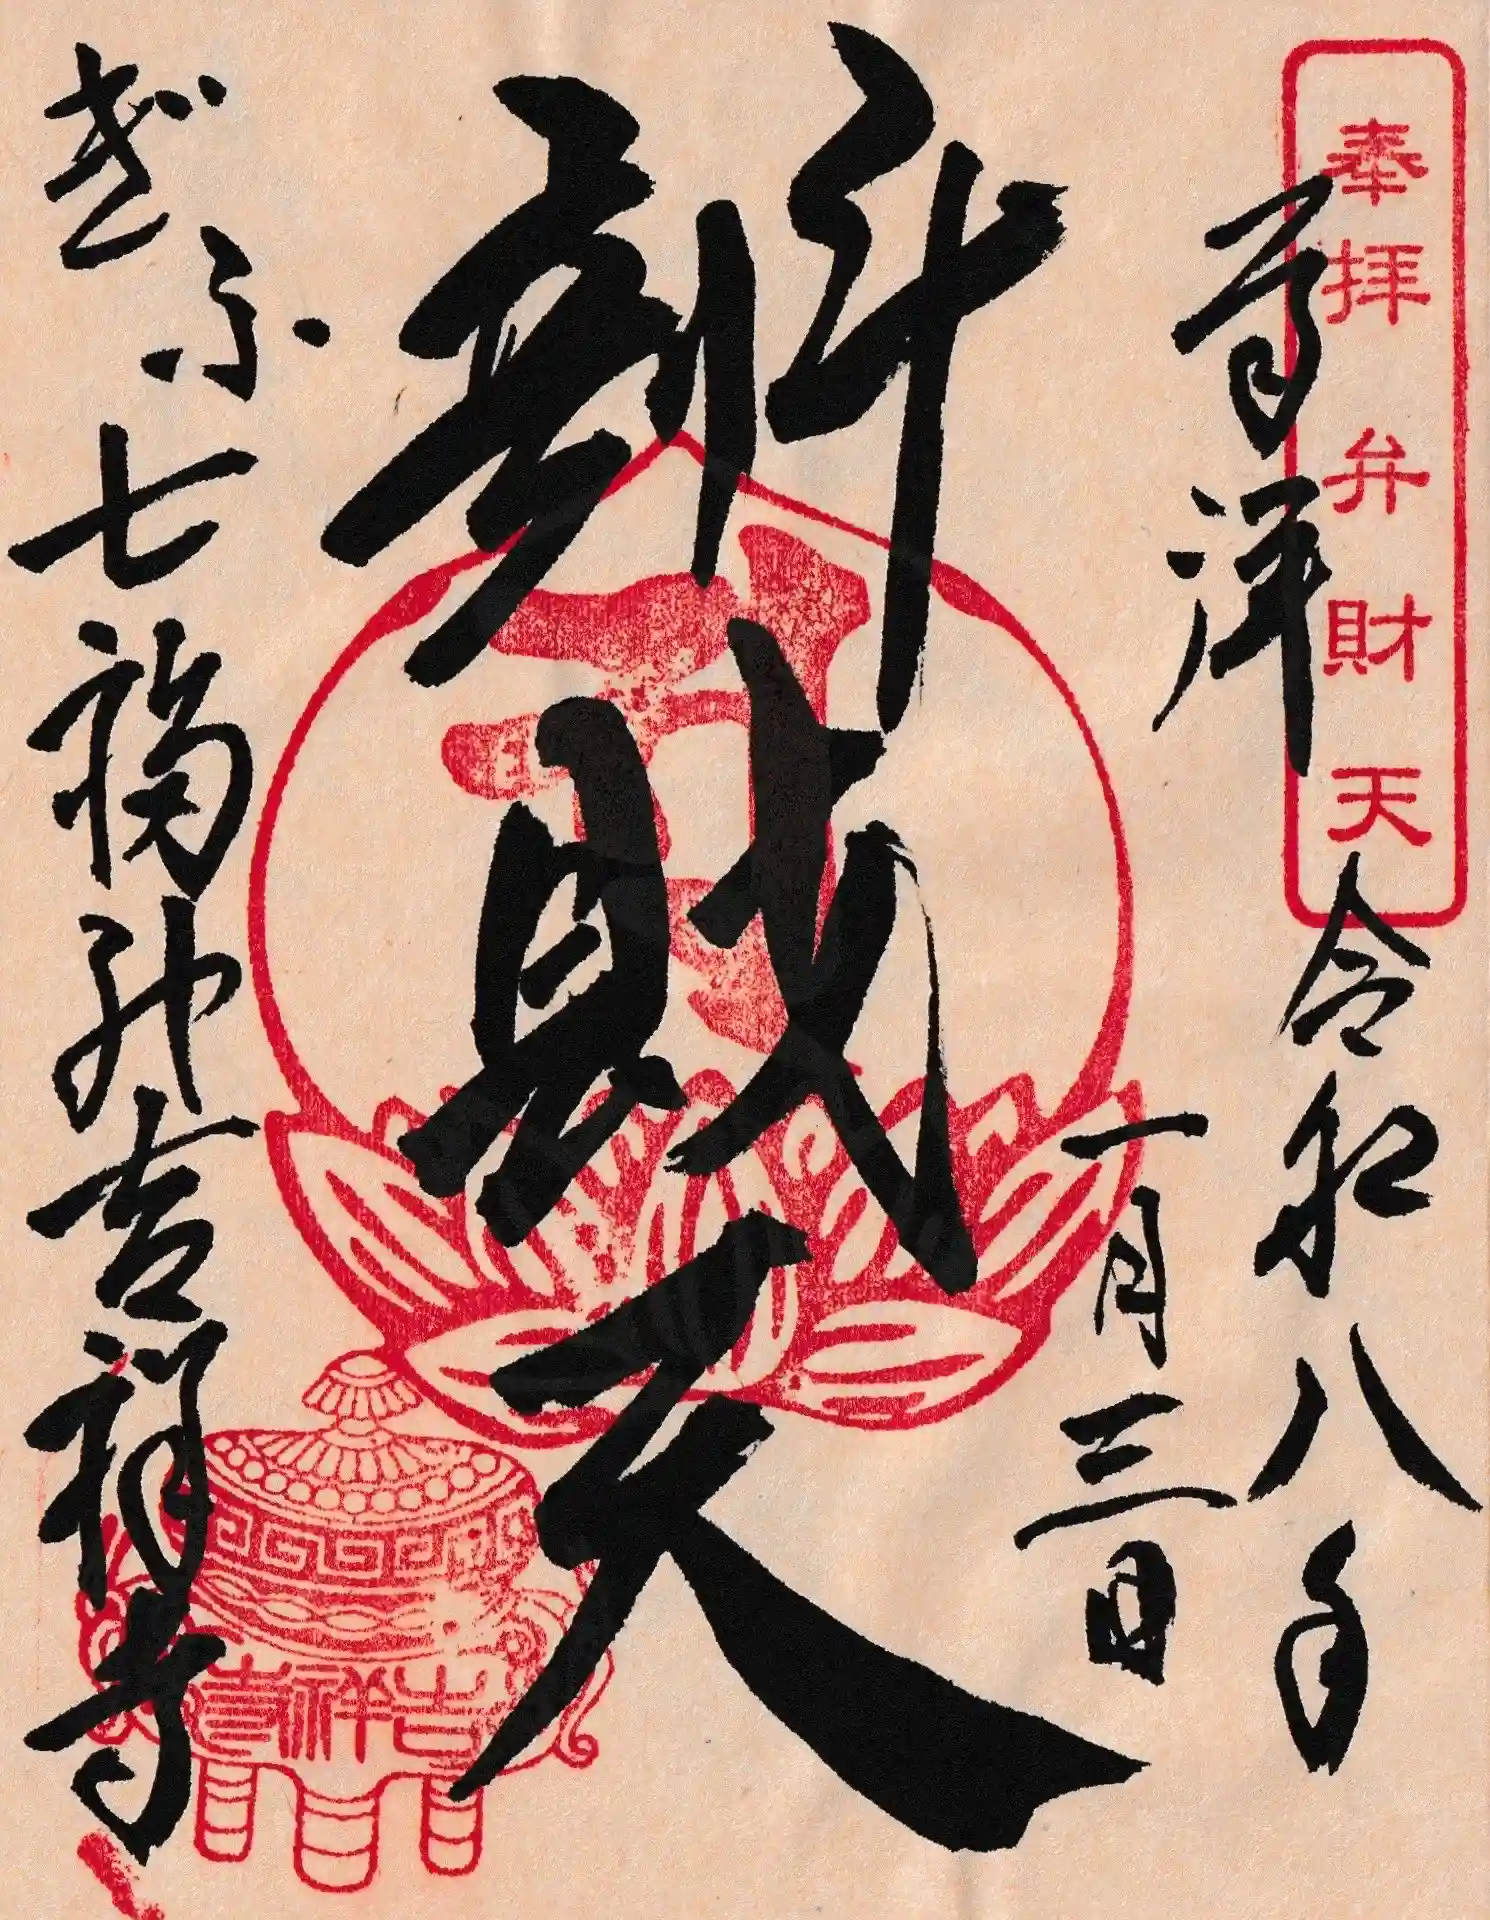 奉拝 弁財天
奉拝
令和八年
一月三日
辨財天
ぎふ七福神 吉祥寺
吉祥寺